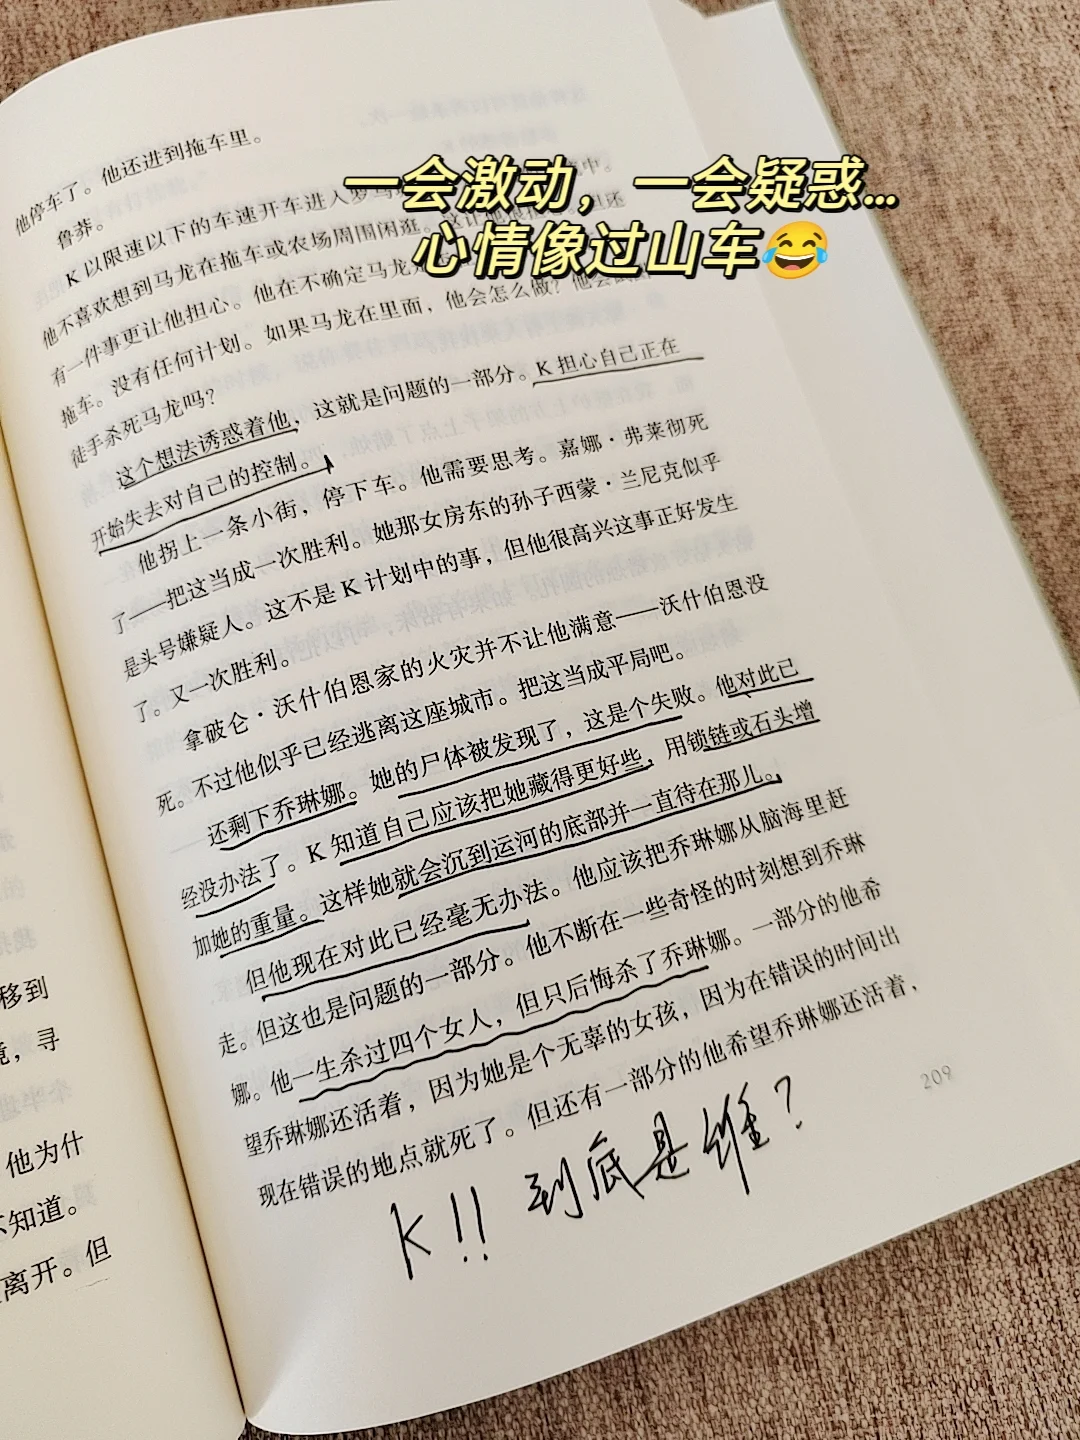 一会激动，一会疑惑...
心情像过山车😂
他停车了。他还进到拖车里。
鲁莽。
K以限速以下的车速开车进入罗马 中。
他不喜欢想到马龙在拖车或农场周围闲逛。这让他很 但还
有一件事更让他担心。他在不确定马龙是
拖车。没有任何计划。如果马龙在里面，他会怎么做？他会
徒手杀死马龙吗？
这个想法诱惑着他，这就是问题的一部分。K担心自己正在
开始失去对自己的控制。
他拐上一条小街，停下车。他需要思考。嘉娜·弗莱彻死
了——把这当成一次胜利。她那女房东的孙子西蒙·兰尼克似乎
是头号嫌疑人。这不是K计划中的事，但他很高兴这事正好发生
了。又一次胜利。
拿破仑·沃什伯恩家的火灾并不让他满意——沃什伯恩没
死。不过他似乎已经逃离这座城市。把这当成平局吧。
还剩下乔琳娜。她的尸体被发现了，这是个失败。他对此已
经没办法了。K知道自己应该把她藏得更好些，用锁链或石头增
加她的重量。这样她就会沉到运河的底部并一直待在那儿。
但他现在对此已经毫无办法。他应该把乔琳娜从脑海里赶
走。但这也是问题的一部分。他不断在一些奇怪的时刻想到乔琳
娜。他一生杀过四个女人，但只后悔杀了乔琳娜。一部分的他希
望乔琳娜还活着，因为她是个无辜的女孩，因为在错误的时间出
现在错误的地点就死了。但还有一部分的他希望乔琳娜还活着，
209
K!! 到底是谁？
移到
竟，寻
他为什
不知道。
离开。但